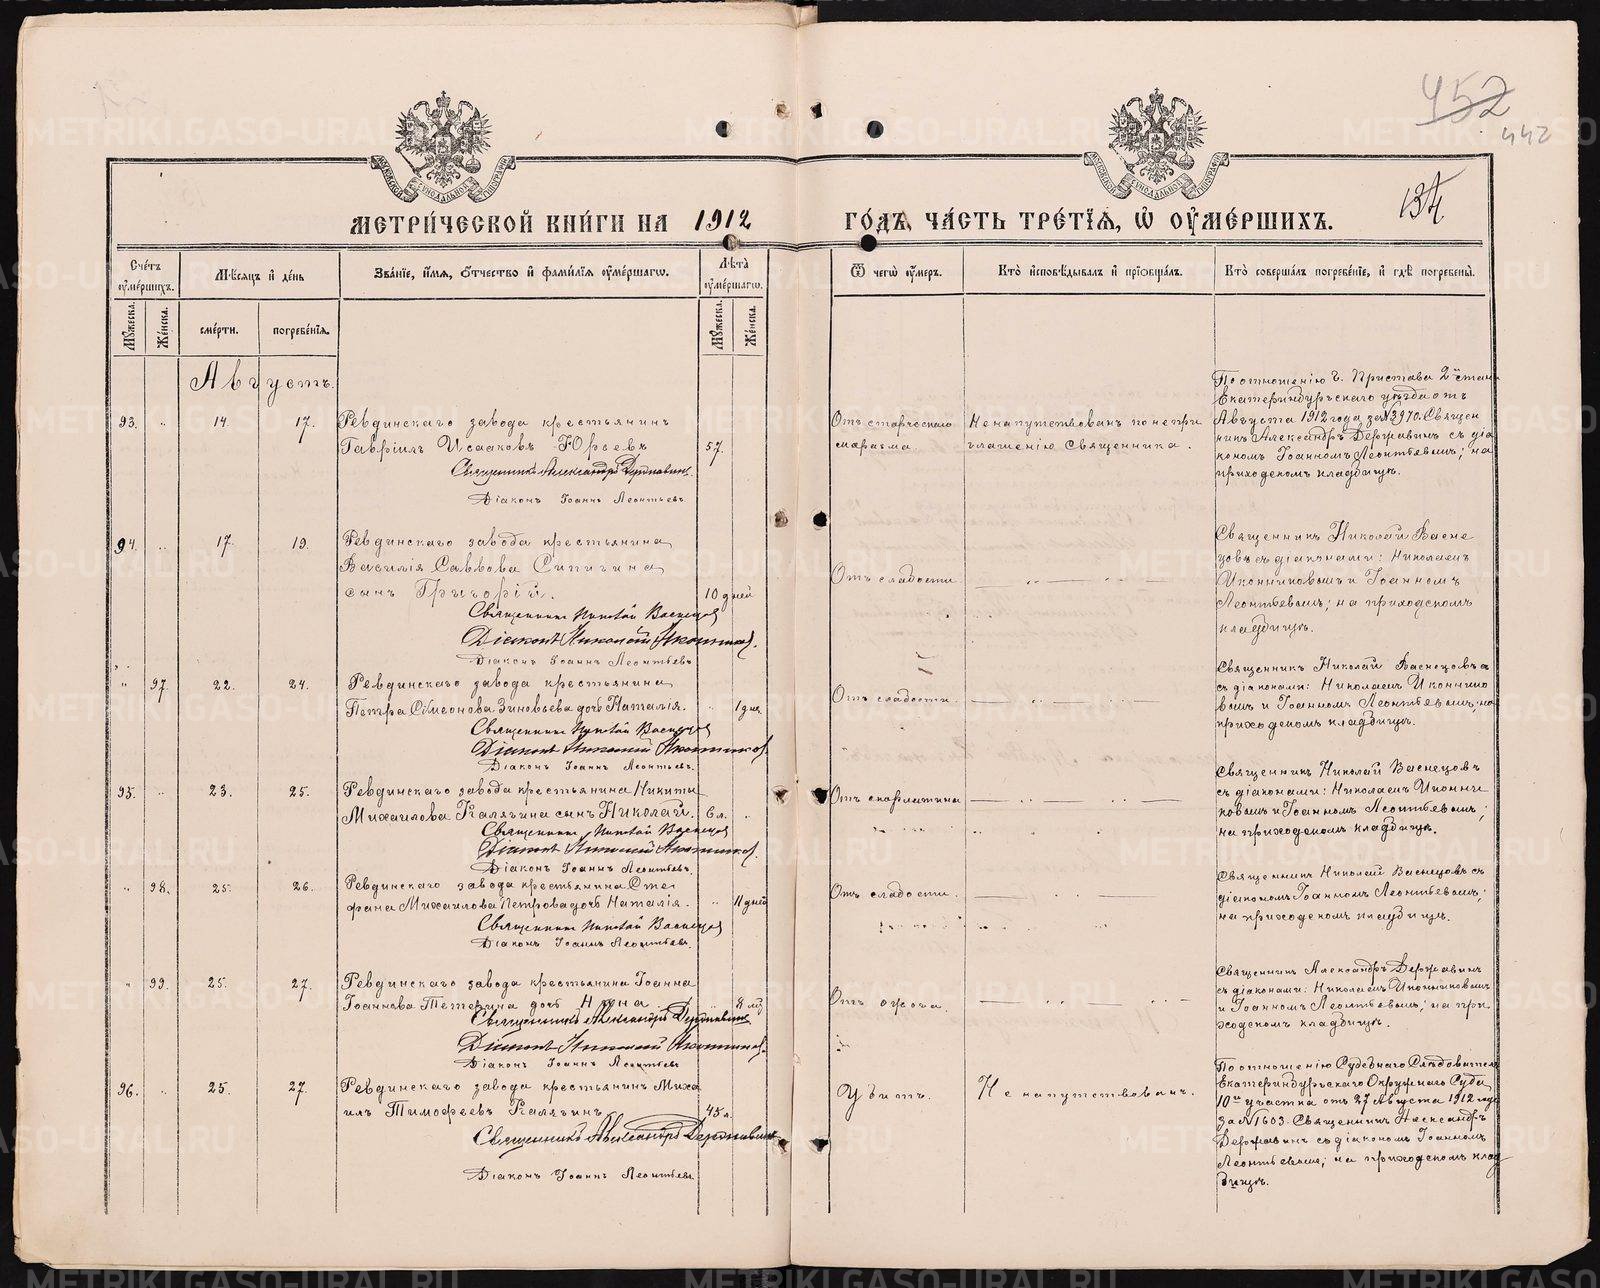 452
442
134
МЕТРИ́ЧЕСКОЙ КНИ́ГИ НА 1912 ГО́ДЪ, ЧА́СТЬ ТРЕ́ТЇѦ, Ѽ ОУМЕ́РШИХЪ.
Сче́тъ оуме́ршихъ.
Мѣ́сѧцъ и де́нь
Зва́нїе, и́мѧ, о́тчество и фами́лїѧ оуме́ршагѡ.
Лѣ́та оуме́ршагѡ.
Ѿ чегѡ̀ оу́меръ.
Кто̀ исповѣ́дывалъ и прїѡбща́лъ.
Кто̀ соверша́лъ погребе́нїе, и гдѣ̀ погребены̀.
Мꙋ́жеска.
Же́нска.
сме́рти.
погребе́нїѧ.
Мꙋ́жеска.
Же́нска.
Августъ.
93. 14. 17.
Ревдинскаго завода крестьянинъ
Гавріилъ Исааковъ Юрьевъ 57.
Священникъ Александръ Державинъ.
Діаконъ Іоаннъ Леонтьевъ.
Отъ старческаго
маразма.
Ненапутствованъ по непри
глашенію Священника.
По отношенію Г. Пристава 2го стана
Екатеринбургскаго уѣзда отъ
Августа 1912 года за №3970. Священ
никъ Александръ Державинъ съ діа
кономъ Іоанномъ Леонтьевымъ; на
приходскомъ кладбищѣ.
94. 17. 19.
Ревдинскаго завода крестьянина
Василія Саввова Сипигина
сынъ Григорій. 10 дней
Священникъ Николай Васнецов
Діаконъ Николай Иконников.
Діаконъ Іоаннъ Леонтьевъ
Отъ слабости
Священникъ Николай Васне
цовъ съ діаконами: Николаемъ
Иконниковымъ и Іоанномъ
Леонтьевымъ; на приходскомъ
кладбищѣ.
97. 22. 24.
Ревдинскаго завода крестьянина
Петра Симеонова Зиновьева дочь Наталія. 1 дня.
Священникъ Николай Васнецов
Діаконъ Николай Иконников
Діаконъ Іоаннъ Леонтьевъ.
Отъ слабости.
Священникъ Николай Васнецовъ
съ діаконами: Николаемъ Иконнико
вымъ и Іоанномъ Леонтьевымъ; на
приходскомъ кладбищѣ.
95. 23. 25.
Ревдинскаго завода крестьянина Никиты
Михаилова Калягина сынъ Николай. 6 л.
Священникъ Николай Васнецов
Діаконъ Николай Иконников.
Діаконъ Іоаннъ Леонтьевъ.
Отъ скарлатины
Священникъ Николай Васнецовъ
съ діаконами: Николаемъ Иконни
ковымъ и Іоанномъ Леонтьевымъ;
на приходскомъ кладбищѣ.
98. 25. 26.
Ревдинскаго завода крестьянина Сте
фана Михаилова Петрова дочь Наталія. 11 дней
Священникъ Николай Васнецов
Діаконъ Іоаннъ Леонтьевъ.
Отъ слабости.
Священникъ Николай Васнецовъ съ
діакономъ Іоанномъ Леонтьевымъ;
на приходскомъ кладбищѣ.
99. 25. 27.
Ревдинскаго завода крестьянина Іоанна
Іоаннова Тетерина дочь
Священникъ Александръ Державинъ
Діаконъ Николай Иконников.
Діаконъ Іоаннъ Леонтьевъ
Отъ ожога.
Священникъ Александръ Державинъ
съ діаконами: Николаемъ Иконниковымъ
и Іоанномъ Леонтьевымъ; на при
ходскомъ кладбищѣ.
96. 25. 27.
Ревдинскаго завода крестьянинъ Миха
илъ Тимофеевъ Калягинъ 45 л.
Священникъ Александръ Державинъ
Діаконъ Іоаннъ Леонтьевъ
Убитъ.
Ненапутствованъ.
По отношенію Судебнаго Слѣдователя
Екатеринбургскаго Окружнаго Суда
10го участка отъ 27 Августа 1912 года
за №1603. Священникъ Александръ
Державинъ съ діакономъ Іоанномъ
Леонтьевымъ; на приходскомъ клад
бищѣ.
METRIKI.GASO-URAL.RU